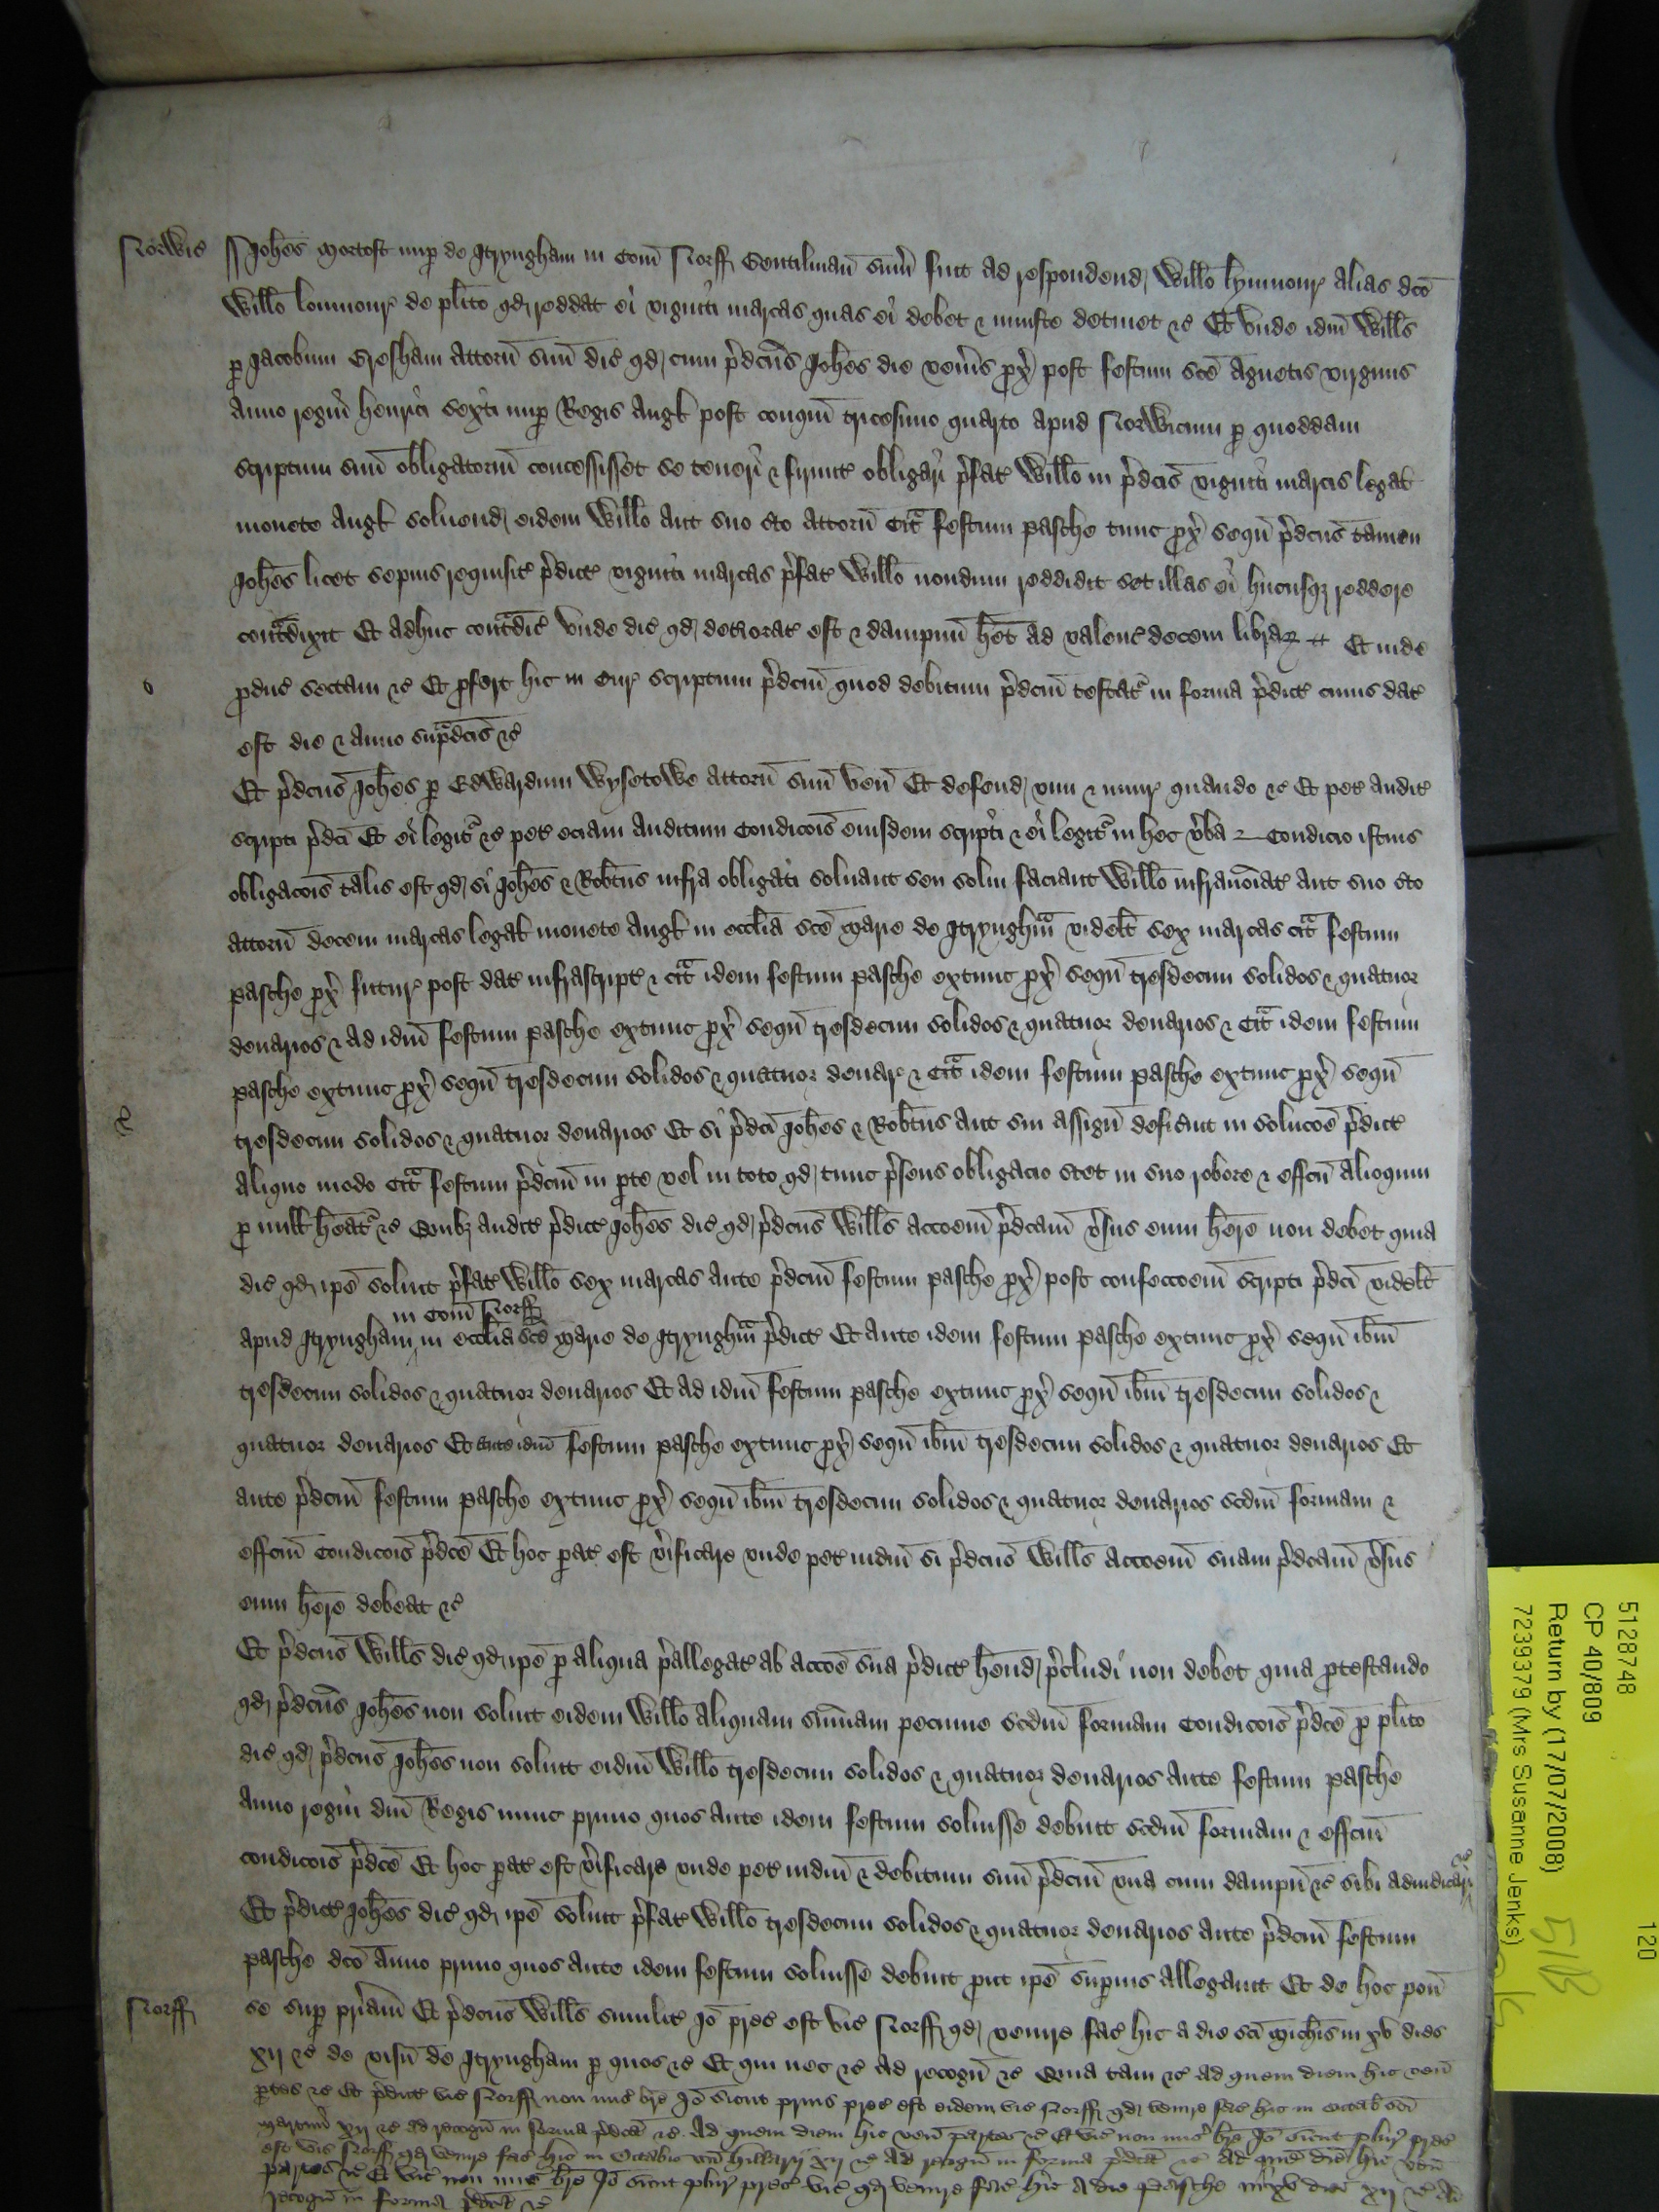 Norwic̄
Joh̄es Mortoft nup̱ de Itryngham in Com̄ Norff Gentilman sum̄ fuit ad respondend Willo lymnour alias dc̄o
Willo lomnour de pl̄ito qd reddat ei viginti marcas quas ei debet & iniuste detinet &c Et unde idm̄ Will̄s
p̱ Jacobum Gresham attorn̄ suū dic̄ qd cum p̄dcus Joh̄es die ven̄is px̄ post festum sc̄e Agnetis virginis
anno regni henrici sexti nup̱ Regis Angl post conqm̄ tricesimo quarto apud Norwicum p̱ quoddam
scriptum suū obligatoriū concessisset se teneri & firmit̄ obligari p̄fat̄ Willo in p̄dcis viginti marcis legal
monete Angl soluend eidem Willo aut suo c̄to attorn̄ cit̄ festum pasche tunc px̄ seqū p̄dcus tamen
Joh̄es licet sepius requisit̄ p̄dict̄ viginti marcas p̄fat̄ Willo nondum reddidit set illas ei hucusq̨ reddere
cont̄dixit Et adhuc cont̄dic̄ unde dic̄ qd deteriorat̄ est & dampnū h̄et ad valenc̄ decem librar̄ Et inde
p̱duc̄ sectam &c Et p̱fert hic in Cur̄ scriptum p̄dcm̄ quod debitum p̄dcm̄ testat̄ in forma p̄dict̄ cuius dat̄
est die & anno sup̄dcis &c
Et p̄dcus Joh̄es p̱ Edwardum Wysetowe attorn̄ suū ven̄ Et defend vim & iniur̄ quando &c Et pet̄ audit̄
scripti p̄dci Et ei legit̄ &c pet̄ eciam auditum Condicōis eiusdem scripti & ei legit̄ in hec v̄ba Condicio istius
obligacōis talis est qd si Joh̄es & Rob̄tus infra obligati soluant seu solui faciant Willo infranōiat̄ aut suo c̄to
attorn̄ decem marcas legal monete Angl in eccl̄ia sc̄e Marie de Itrynghm̄ videlt̄ sex marcas cit̄ festum
pasche px̄ futur̄ post dat̄ infrascript̄ & cit̄ idem festum pasche extunc px̄ seqū tresdecim solidos & quatuor
denarios & ad idm̄ festum pasche extunc px̄ seqū tresdecim solidos & quatuor denarios & cit̄ idem festum
pasche extunc px̄ seqū tresdecim solidos & quatuor denar̄ & cit̄ idem festum pasche extunc px̄ seqū
tresdecim solidos & quatuor denarios Et si p̄dci Joh̄es & Rob̄tus aut sui assign̄ defic̄ant in solucōe p̄dict̄
aliquo modo cit̄ festum p̄dcm̄ in p̱te vel in toto qd tunc p̄sens obligacio stet in suo robore & effcu alioquin
p̱ null̄ h̄eat̄ &c Quib̨ audit̄ p̄dict̄ Joh̄es dic̄ qd p̄dcus Will̄s accōem p̄dcam v̄sus eum h̄ere non debet quia
dic̄ qd ip̄e soluit p̄fat̄ Willo sex marcas ante p̄dcm̄ festum pasche px̄ post confeccōem scripti p̄dci videlt̄
in Com̄ Norff
apud Itryngham in eccl̄ia sc̄e Marie de Itrynghm̄ p̄dict̄ Et ante idem festum pasche extunc px̄ seqū ib̄m
tresdecim solidos & quatuor denarios Et ad idm̄ festum pasche extunc px̄ seqū ib̄m tresdecim solidos &
quatuor denarios Et ante idm̄ festum pasche extunc px̄ seqū ib̄m tresdecim solidos & quatuor denarios Et
ante p̄dcm̄ festum pasche extunc px̄ seqū ib̄m tresdecim solidos & quatuor denarios scdm̄ formam &
effcm̄ Condicōis p̄dce Et hoc pat̄ est v̄ificare unde pet̄ iudm̄ si p̄dcus Will̄s accōem suam p̄dcam v̄sus
eum h̄ere debeat &c
Et p̄dcus Will̄s dic̄ qd ip̄e p̱ aliqua p̄allegat̄ ab accōe sua p̄dict̄ h̄end p̄cludi non debet quia p̱testando
qd p̄dcus Joh̄es non soluit eidem Willo aliquam sum̄am pecunie scdm̄ formam Condicōis p̄dce p̱ pl̄ito
dic̄ qd p̄dcus Joh̄es non soluit eidm̄ Willo tresdecim solidos & quatuor denarios ante festum pasche
anno regni dn̄i Regis nunc primo quos ante idem festum soluisse debuit scdm̄ formam & effcm̄
condicōis p̄dce Et hoc pat̄ est v̄ificare unde pet̄ iudm̄ & debitum suū p̄dcm̄ una cum dampn̄ &c sibi adiudicari &c
Et p̄dict̄ Joh̄es dic̄ qd ip̄e soluit p̄fat̄ Willo tresdecim solidos & quatuor denarios ante p̄dcm̄ festum
pasche dc̄o anno primo quos ante idem festum soluisse debuit p̱ut ip̄e sup̱ius allegauit Et de hoc pon̄
Norff
se sup̱ pr̄iam Et p̄dcus Will̄s similit̄ Iō prec̄ est vic̄ Norff qd venire fac̄ hic a die sc̄i Mich̄is in xv dies
xij &c de visn̄ de Itryngham p̱ quos &c Et qui nec &c ad recogn̄ &c Quia tam &c ad quem diem hic ven̄
p̱tes &c Et p̄dict̄ vic̄ Norff non mis̄ br̄e Iō sicut prius prec̄ est eidem vic̄ Norff qd venire fac̄ hic in octab̄ sc̄i
Martini xij &c ad recogn̄ in forma p̄dcā &c Ad quem diem hic ven̄ partes &c Et vic̄ non mis̄ br̄e Iō sicut plur̄ prec̄
est vic̄ Norff qd venire fac̄ hic in Octabis sc̄i hillarij xij &c Ad recogn̄ in forma p̄dcā &c Ad quē diē hic ven̄
partes &c Et vic̄ non mis̄ br̄e Iō sicut plur̄ prec̄ vic̄ qd venire fac̄ hic A die Pasche in xv dies xij &c Ad
recogn̄ in forma p̄dcā &c
5128748 120
CP 40/809
Return by (17/07/2008)
7239379 (Mrs Susanne Jenks)